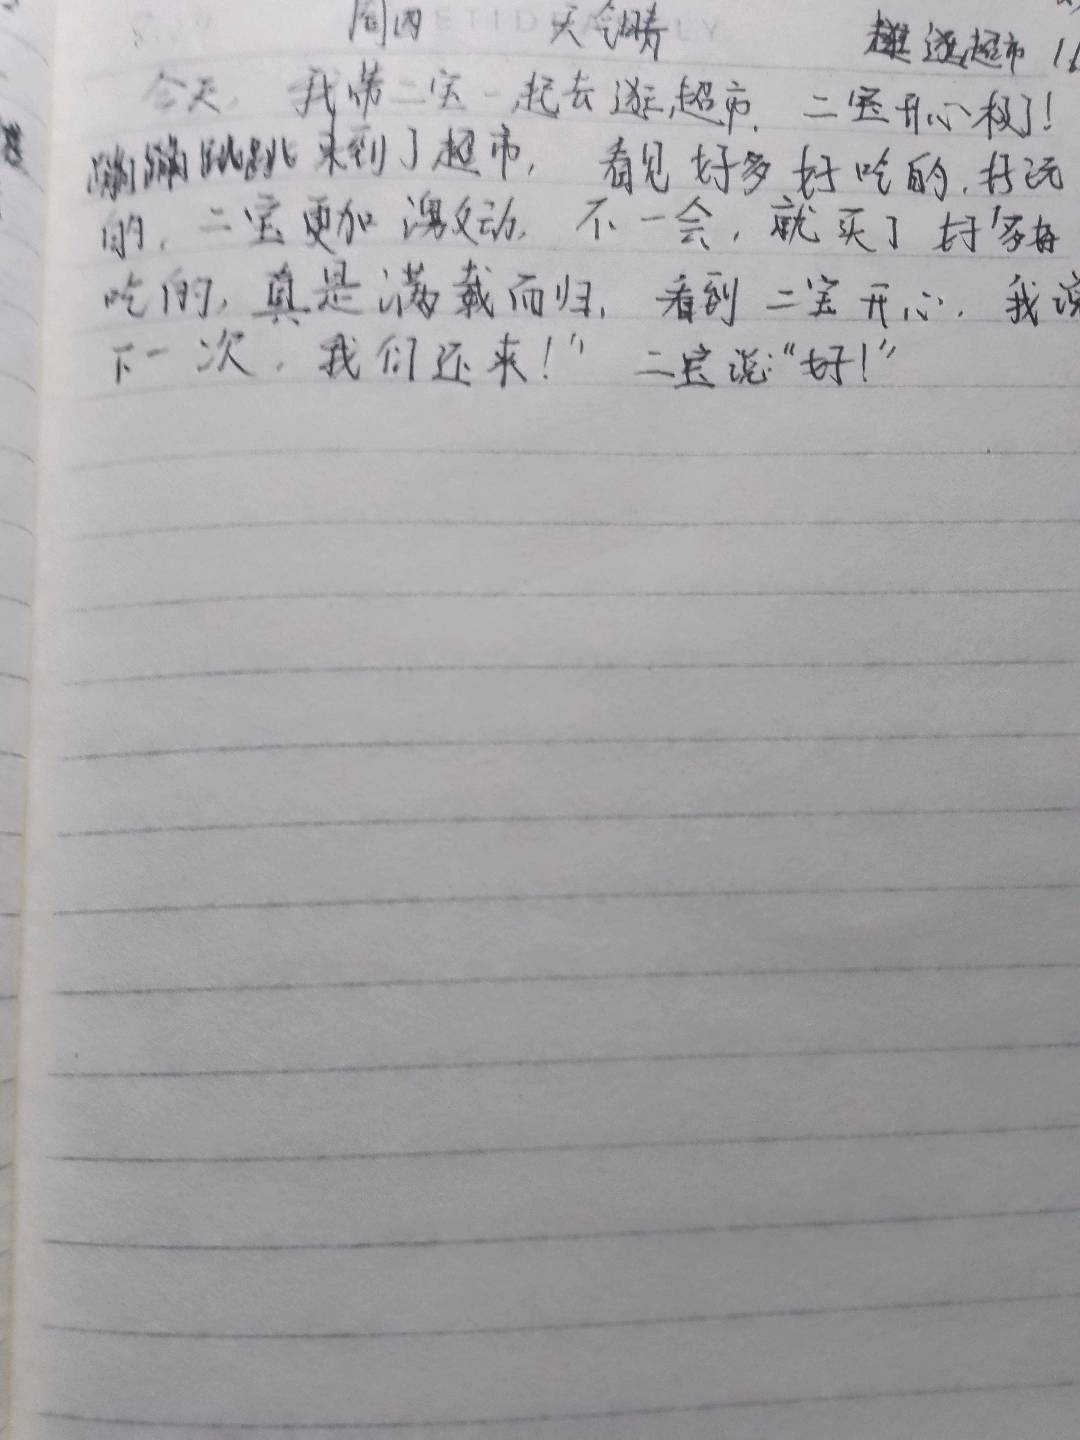 周四 天气晴 逛超市
今天，我带二宝一起去逛超市，二宝开心极了！
蹦蹦跳跳来到了超市，看见好多好吃的，好玩
的，二宝更加激动，不一会，就买了好多好
吃的，真是满载而归，看到二宝开心，我说
下一次，我们还来！” 二宝说：“好！”